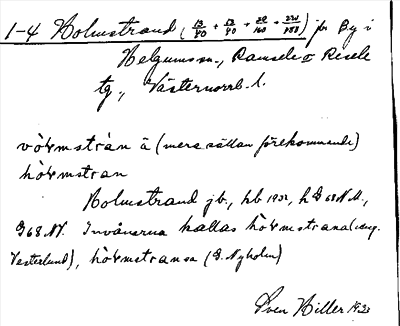 1-4 Holmstrand (13/40 + 13/40 + 20/160 + 231/188) jb By i
Helgums sn., Ramsele o Resele
tg., Västernorrl. l.
hòɤmstràn ä (mera sällan förekommande)
hòɤmstran
Holmstrand jb., hb 1932, hG 68 N.M.,
G 68 NV. Invånarna kallas hòɤmstrana (aug.
Vesterlund), hòɤmstransa (G. Nyholm)
Sven Hiller 193